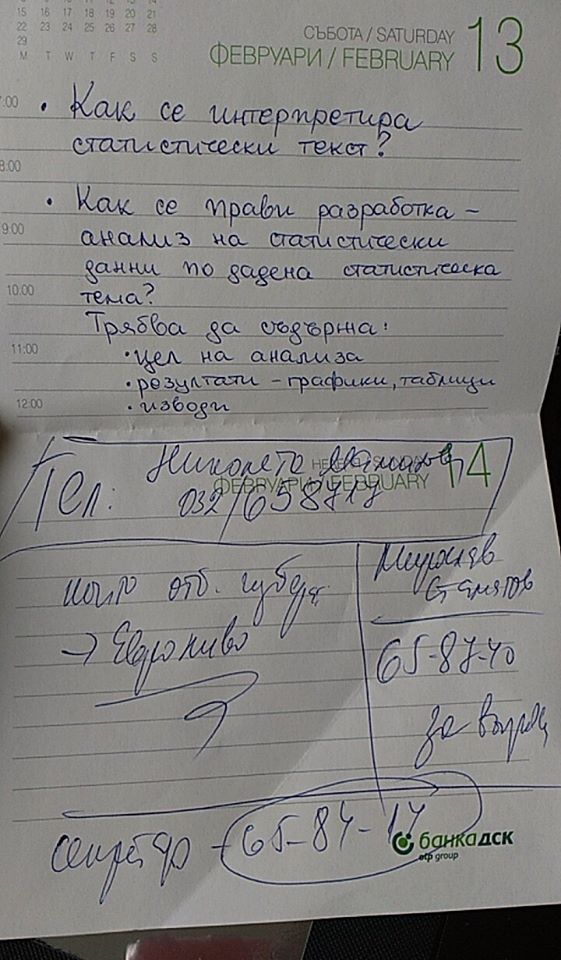 15 16 17 18 19 20 21
22 23 24 25 26 27 28
29
M T W T F S S
СЪБОТА / SATURDAY
ФЕВРУАРИ / FEBRUARY 13
7:00
• Как се интерпретира
статистически текст?
8:00
• Как се прави разработка -
9:00
анализ на статистически
данни по дадена статистическа
10:00
тема?
Трябва да съдържа:
11:00
• цел на анализа
• резултати - графики, таблици
12:00
• изводи
Николета
ФЕВРУАРИ / FEBRUARY 14
Тел: 032/658717
Мирослав
Стаматов
отб.
→ Евро
65-87-40
за
секретар - 65-87-17
банкаДСК
otp group